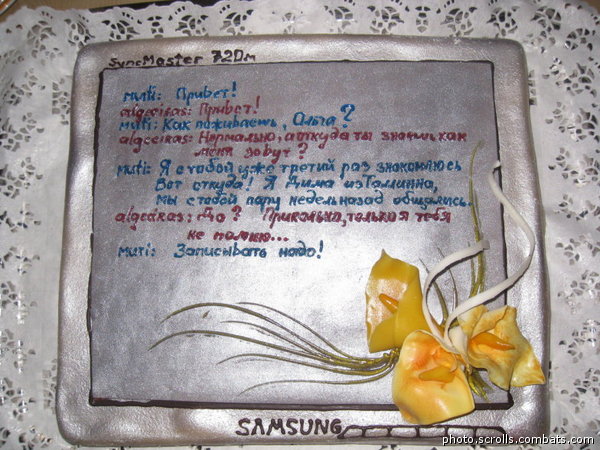 SyncMaster 720m
muti: Привет!
algeciras: Привет!
muti: Как поживаешь, Ольга?
algeciras: Нормально, а откуда ты знаешь как
меня зовут?
muti: Я с тобой уже третий раз знакомлюсь
Вот откуда! Я Дима из Таллинна,
мы с тобой пару недель назад общались.
algeciras: Да? Прикольно, только я тебя
не помню...
muti: Записывать надо!
SAMSUNG
photo.scrolls.combats.com